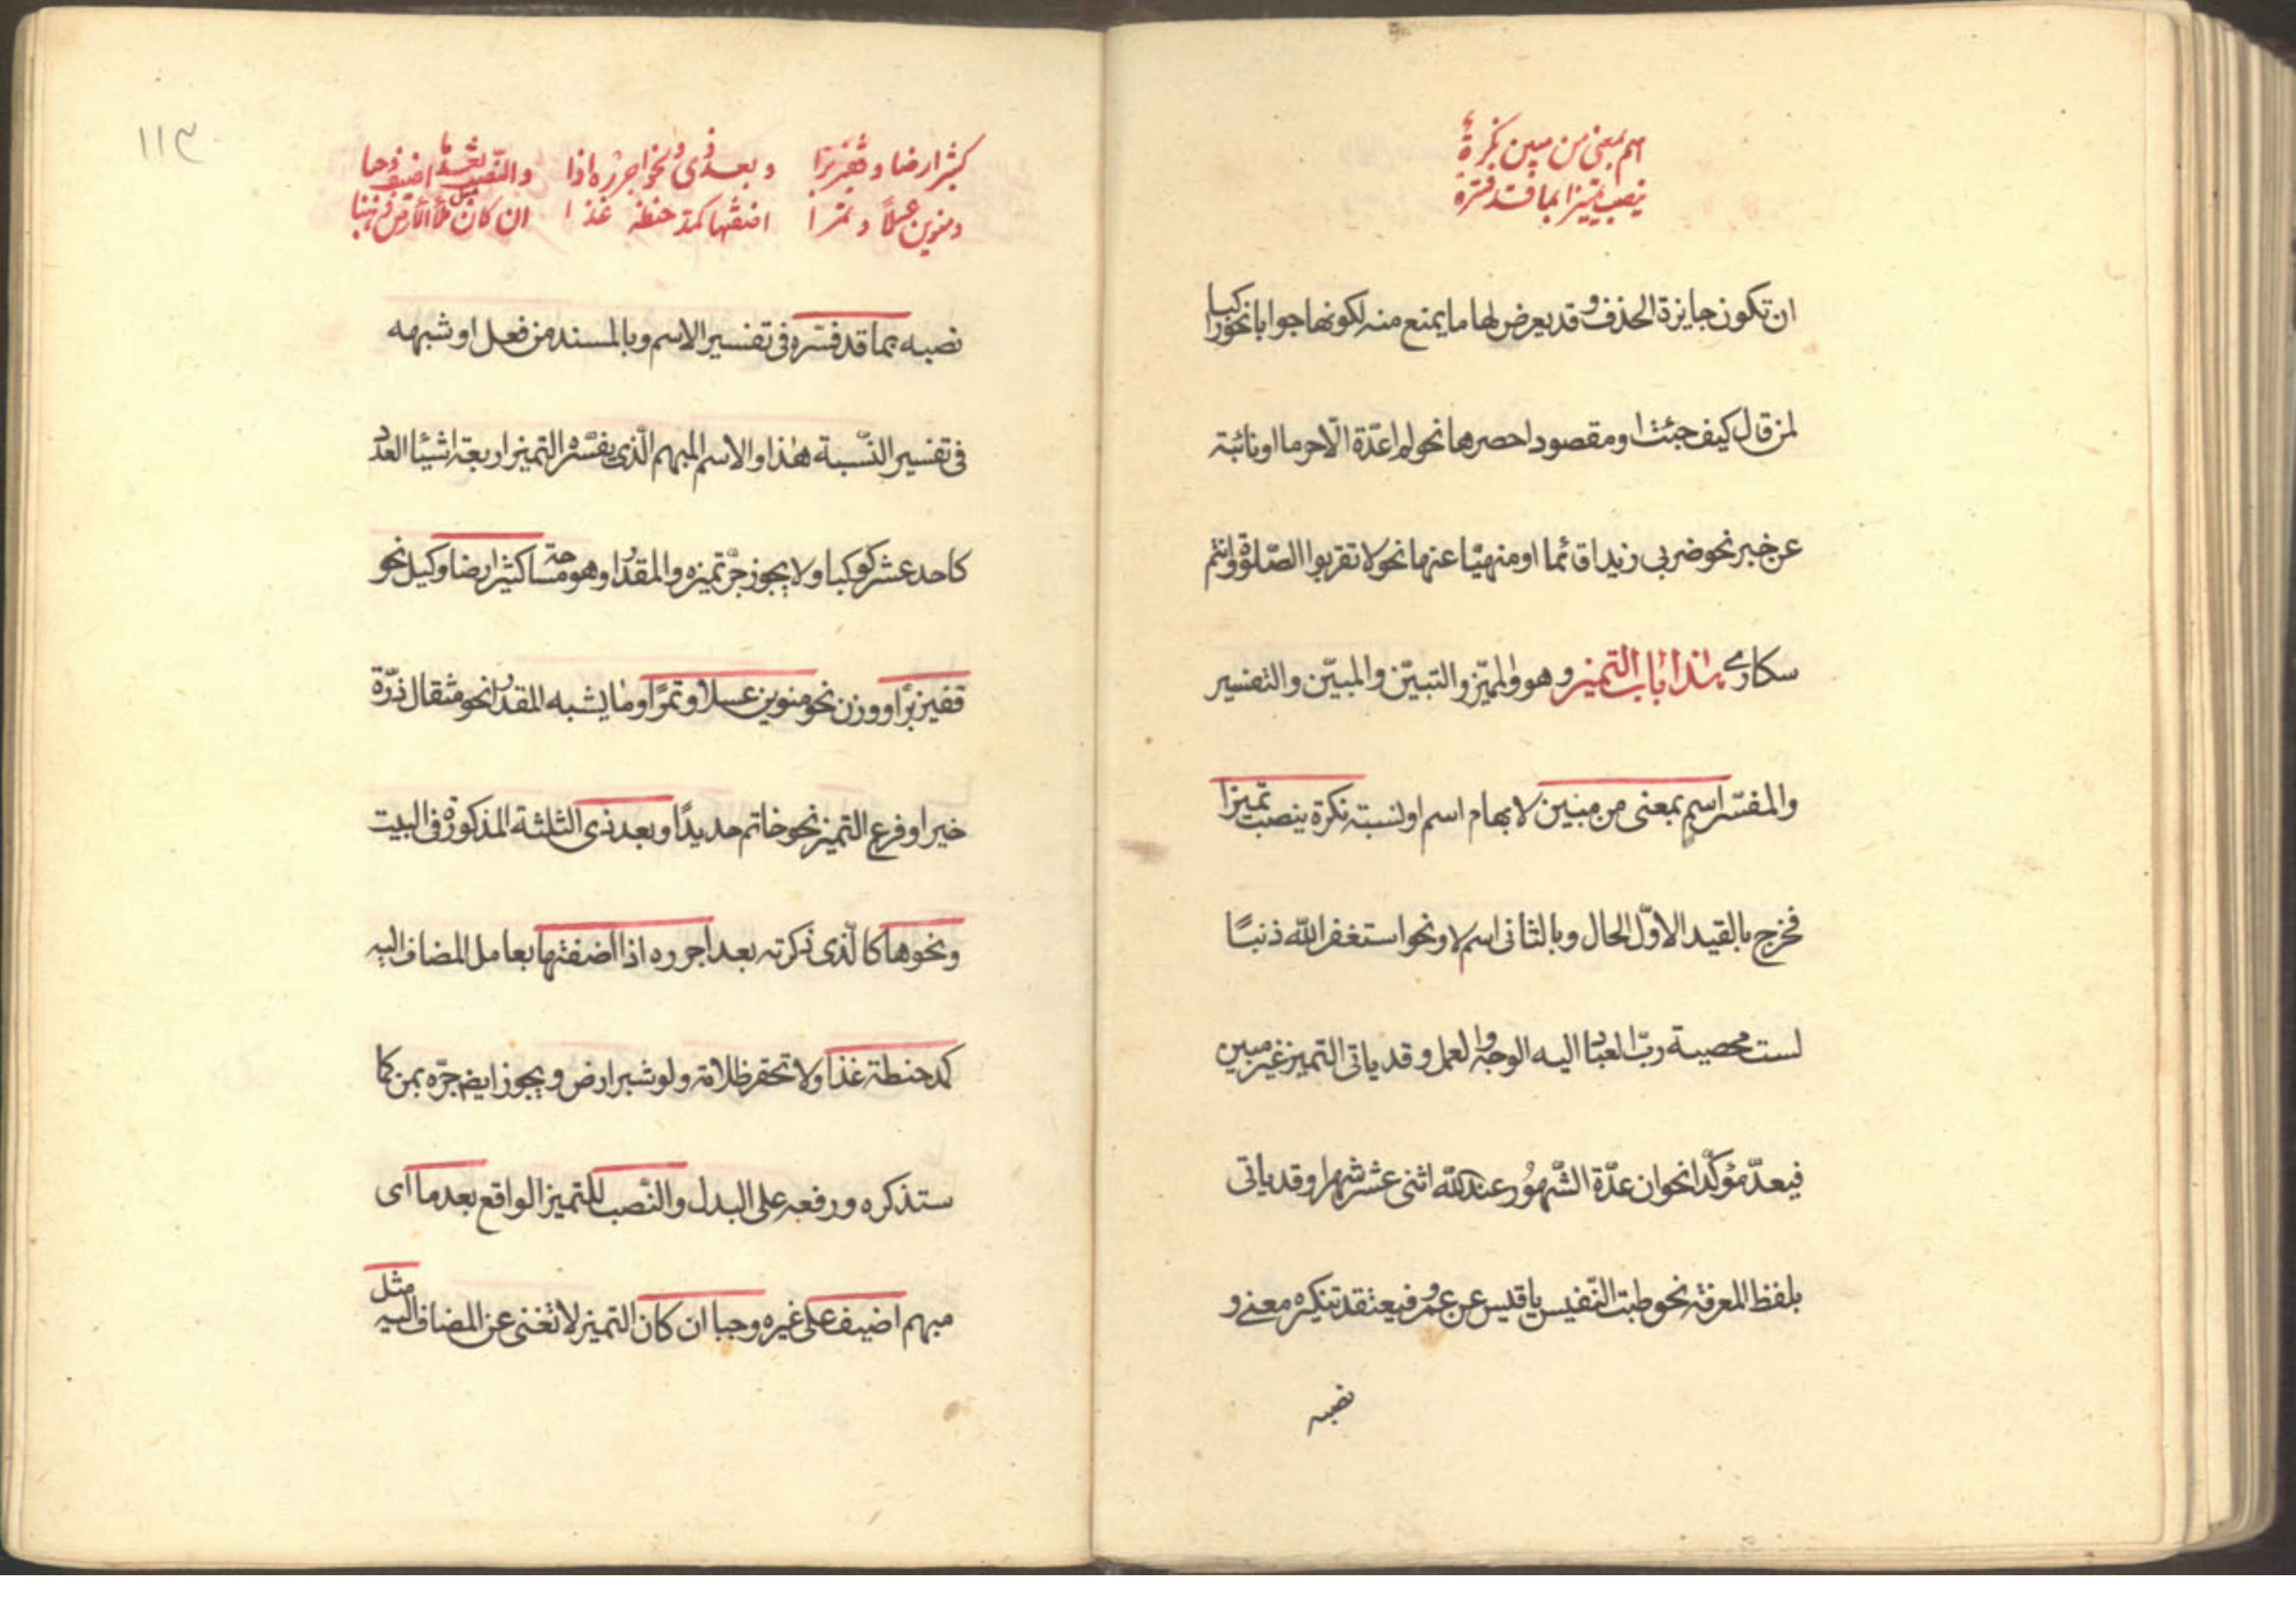 اسم بمعنى من مبين نكرة
ينصب تميزا بما قد فسره
ان تكون جايزة الحذف وقد يعرض لها ما يمنع منه لكونها جوابا نحو راكبا
لمن قال كيف جئت او مقصودا حصرها نحو لم اعدّه الّا حرما او نائبة
عن خبر نحو ضربى زيدا قائما او منهيّا عنها نحو لا تقربوا الصّلوة وانتم
سكارى هذا باب التميز وهو والمميّز والتبيّن والمبيّن والتفسير
والمفسّر اسم بمعنى من مبين لابهام اسم او نسبة نكرة ينصب تميزا
فخرج بالقيد الاوّل الحال وبالثانى اسم لا ونحو استغفر الله ذنبًا
لست محصيه ربّ العباد اليه الوجه والعمل وقد ياتى التميز غير مبين
فيعدّ مؤكّدا نحو ان عدّة الشّهُور عند الله اثنى عشر شهرا وقد ياتى
بلفظ المعرفة نحو طبت النّفس يا قيس عن عمرو فيعتقد تنكيره معنے و
نصبه
١١٣
كشبر ارضا وقفيز برّا وبعد ذى ونحوها اجرره اذا والنّصب بعد ما اضيف وجبا
ومنوين عسلًا وتمرا اضفتها كمد حنطة غذا ان كان مثل ملأ الارض ذهبا
نصبه بما قد فسّره فى تفسير الاسم وبالمسند من فعل او شبهه
فى تفسير النّسبة هذا والاسم المبهم الّذى يفسّره التميز اربعة اشيئا العدد
كاحد عشر كوكبا ولا يجوز جرّ تميزه والمقدار وهو مساحة كشبر ارضا وكيل نحو
قفيز برًّا ووزن نحو منوين عسلا وتمرًا وما يشبه المقدار نحو مثقال ذرّة
خيرا وفرع التميز نحو خاتم حديدًا وبعد ذى الثلثة المذكورة فى البيت
ونحوها كالّذى ذكرته بعد اجرره اذا اضفتها بعامل المضاف اليه
كمد حنطة غذا ولا تحقر ظلامة ولو شبر ارض ويجوز ايضا جرّه بمن كما
ستذكره ورفعه على البدل والنّصب للتميز الواقع بعد ما اى
مبهم اضيف على غيره وجبا ان كان التميز لا تغنى عن المضاف اليه مثل